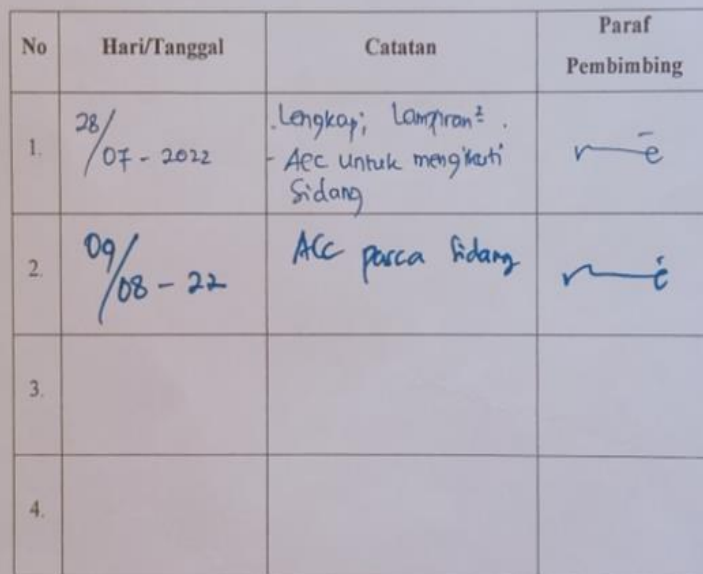 No Hari/Tanggal Catatan Paraf Pembimbing
1. 28/07-2022 - Lengkapi Lampiran² .
- Acc untuk mengikuti
Sidang
2. 09/08-22 ACC pasca Sidang
3.
4.